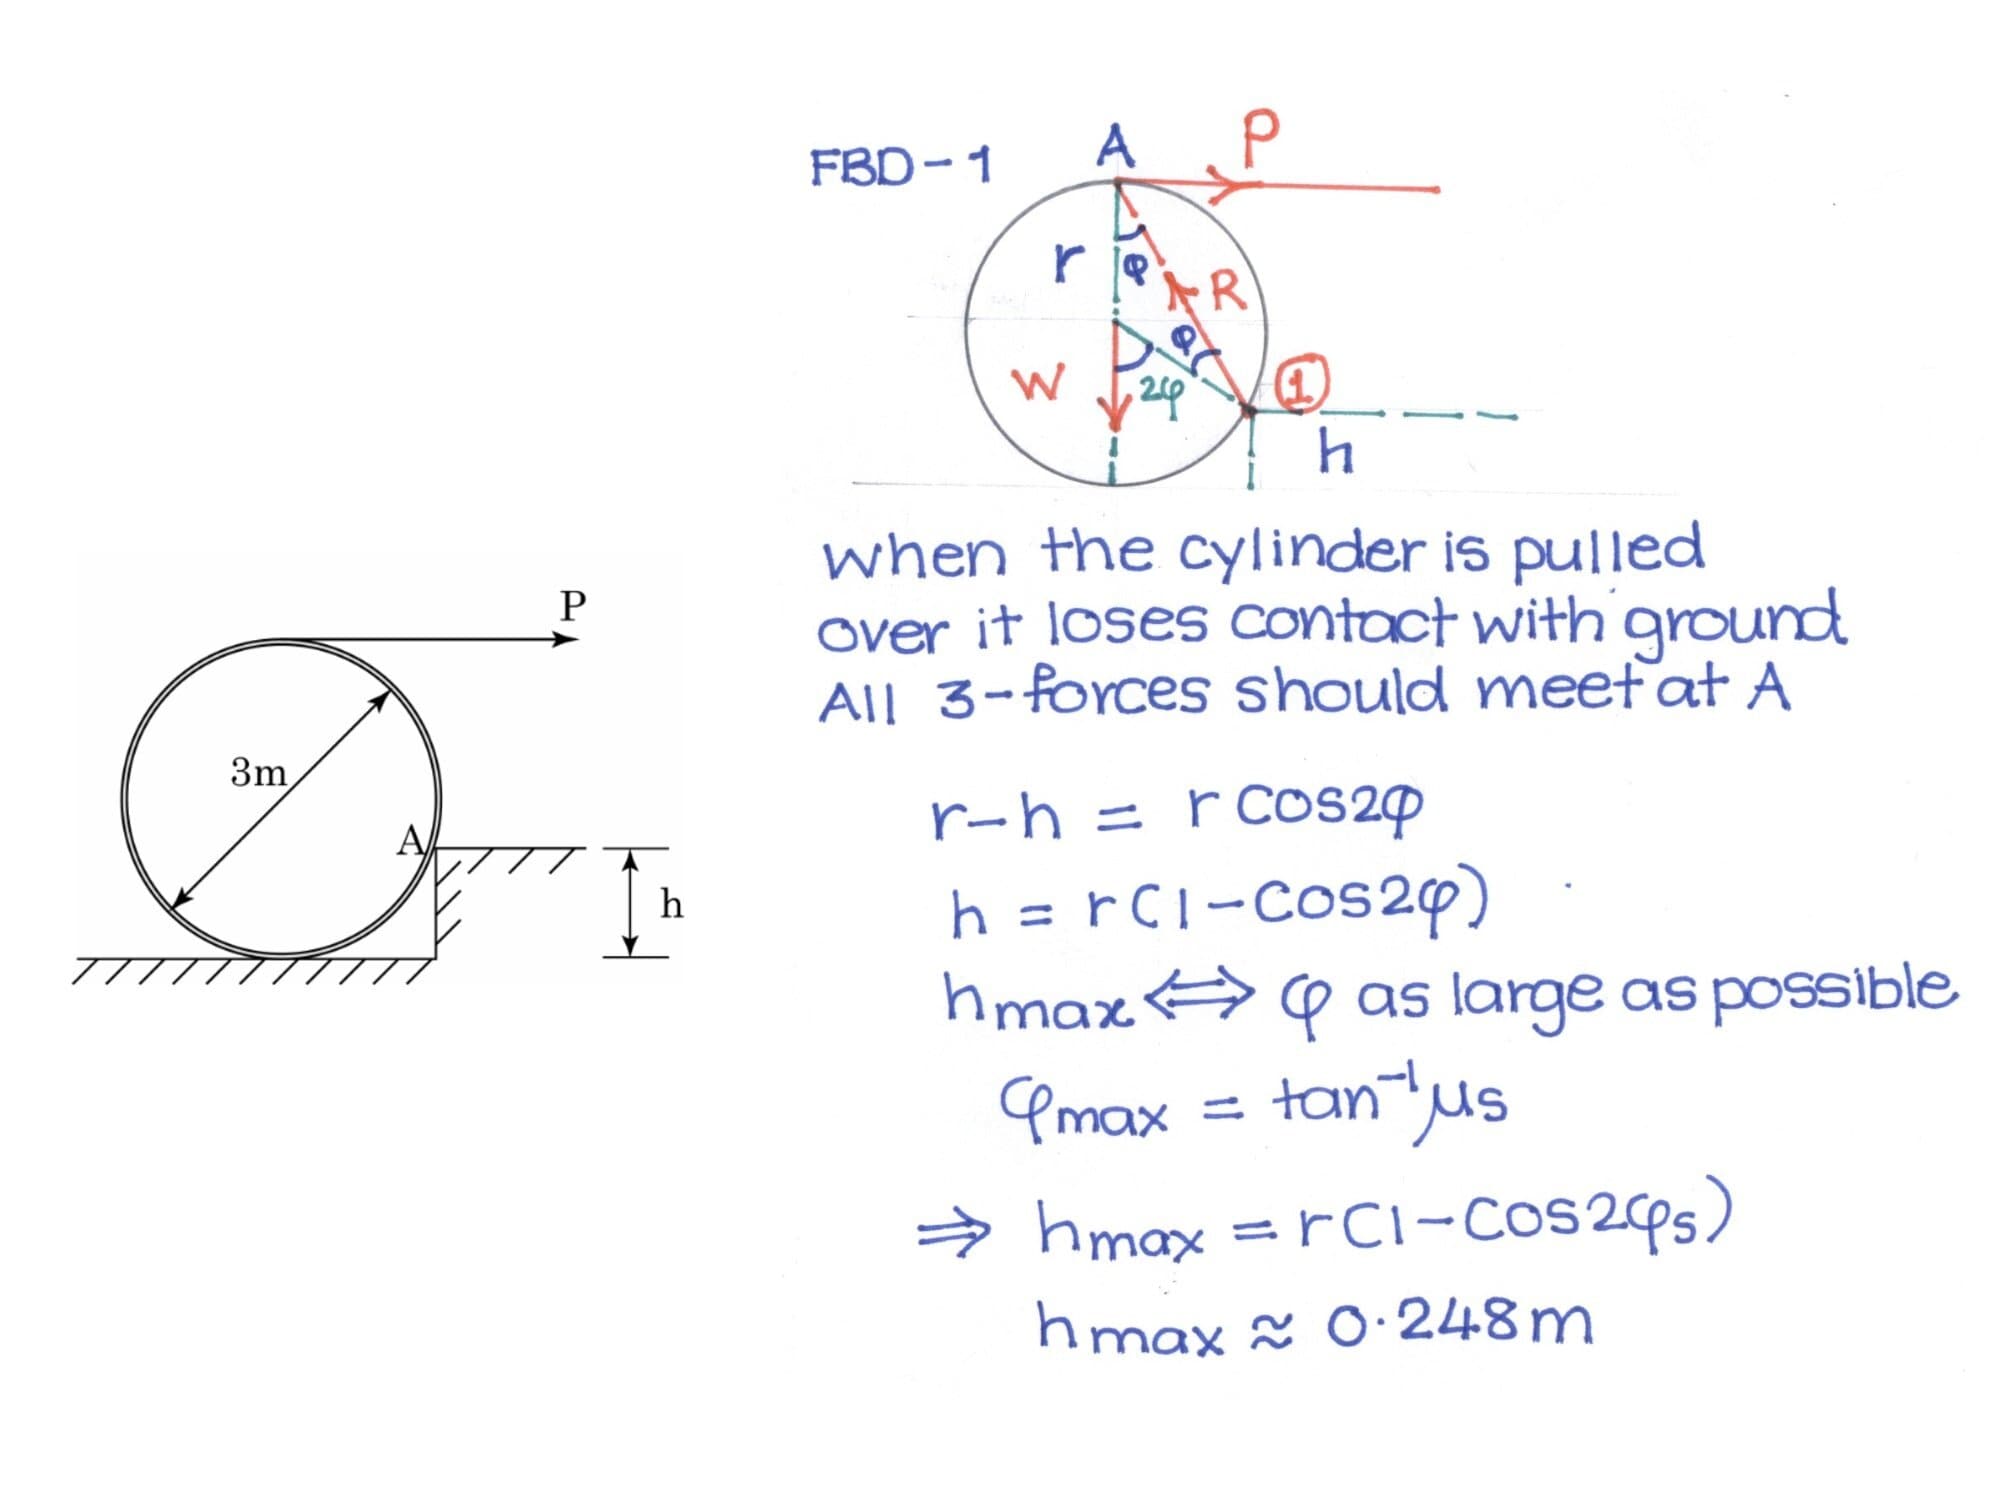 FBD-1
A
P
r
φ
R
φ
W
2φ
1
h
when the cylinder is pulled
over it loses contact with ground
All 3-forces should meet at A
r-h = r cos2φ
h = r(1-cos2φ)
hmax ⇔ φ as large as possible
φmax = tan⁻¹μs
⇒ hmax = r(1-cos2φs)
hmax ≈ 0.248m
P
3m
A
h